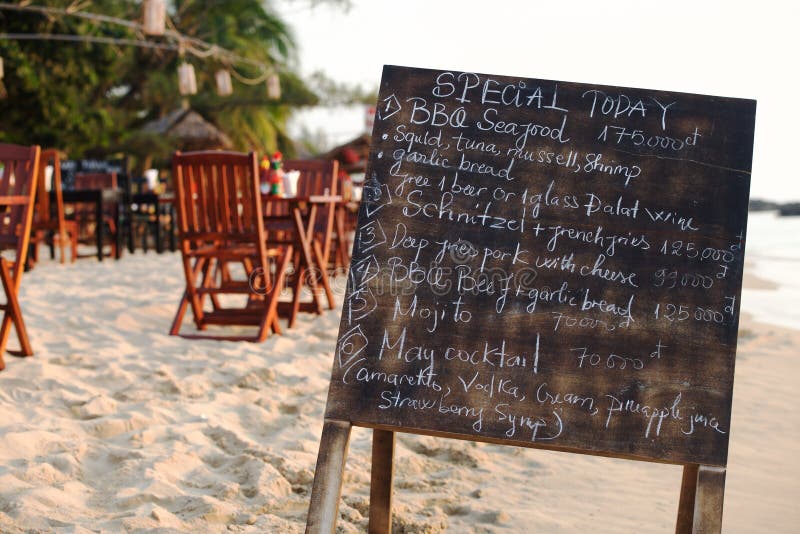 SPECIAL TODAY
1) BBQ Seafood 175.000đ
• Squid, tuna, mussell, Shrimp
• garlic bread
• free 1 beer or 1 glass Dalat wine
2) Schnitzel + frenchfries 125.000đ
3) Deep fries pork with cheese 99.000đ
4) BBQ Beef + garlic bread 125.000đ
5) Mojito 70.000đ
6) May cocktail 70.000đ
(amaretto, Vodka, Cream, pineapple juice
Strawberry Syrup)
dreamstime